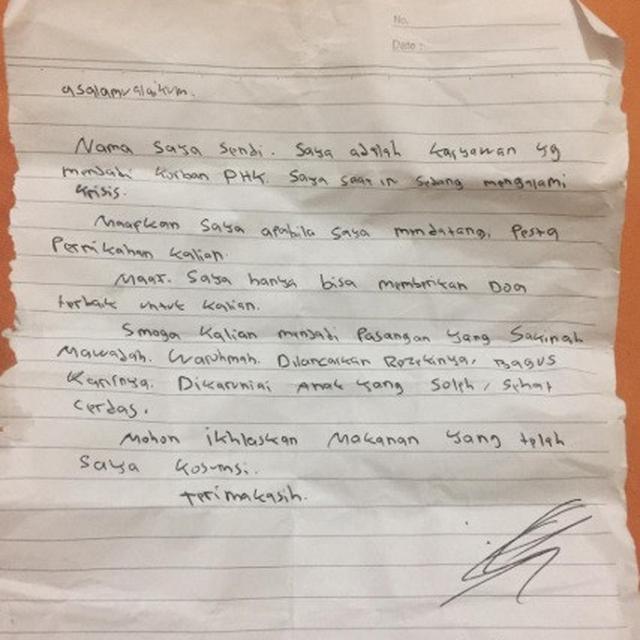 No.
Date :
asalamualaikum.
Nama saya Sendi. Saya adalah karyawan yg
menjadi korban PHK. Saya saat ini sedang mengalami
krisis.
Maapkan saya apabila saya mendatangi Pesta
Pernikahan kalian.
Maaf. Saya hanya bisa memberikan Doa
terbaik untuk kalian.
Smoga kalian menjadi Pasangan yang Sakinah
Mawadah. Warohmah. Dilancarkan Rezekinya, Bagus
Karirnya. Dikaruniai Anak yang Soleh, Sehat
Cerdas.
Mohon ikhlaskan Makanan yang telah
saya kosumsi.
terimakasih.